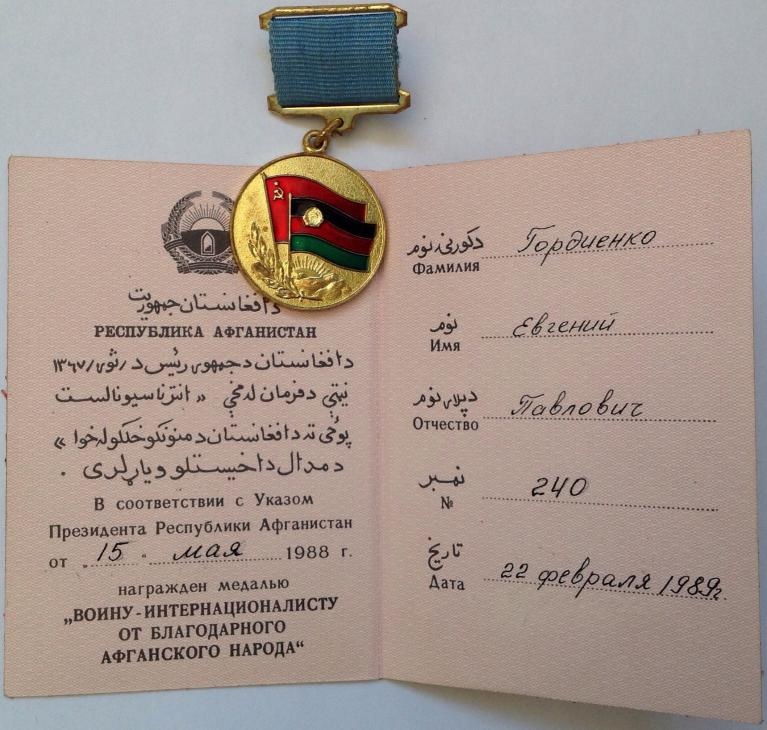 د افغانستان جمهوریت
РЕСПУБЛИКА АФГАНИСТАН
د افغانستان د جمهوری رئیس د / ثور / ۱۳۶۷
نیټې د فرمان له مخې « انترناسیونالست
پوځی ته د افغانستان د منونکو خلکو له خوا »
د مدال د اخیستلو ویاړ لری .
В соответствии с Указом
Президента Республики Афганистан
от „ 15 “ мая 1988 г.
награжден медалью
„ВОИНУ-ИНТЕРНАЦИОНАЛИСТУ
ОТ БЛАГОДАРНОГО
АФГАНСКОГО НАРОДА“
د کورنۍ نوم Гордиенко
Фамилия
نوم Евгений
Имя
د پلار نوم Павлович
Отчество
نمبر 240
№
تاریخ 22 февраля 1989г
Дата